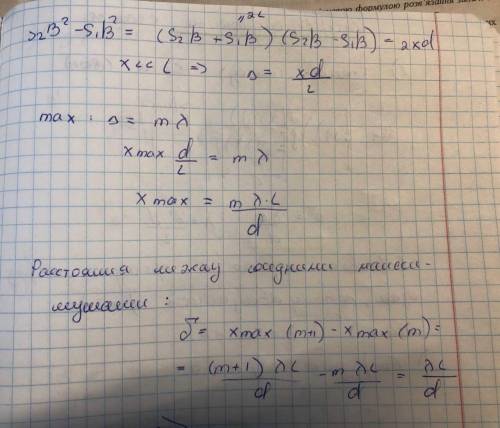 "2L
S₂B² - S₁B² = (S₂B + S₁B) (S₂B - S₁B) = 2xd
x << L => Δ = xd/L
max: Δ = mλ
xmax d/L = mλ
xmax = mλ·L/d
Расстояния между соседними макси-
мумами:
δ = xmax (m+1) - xmax (m) =
= (m+1) λL/d - mλL/d = λL/d